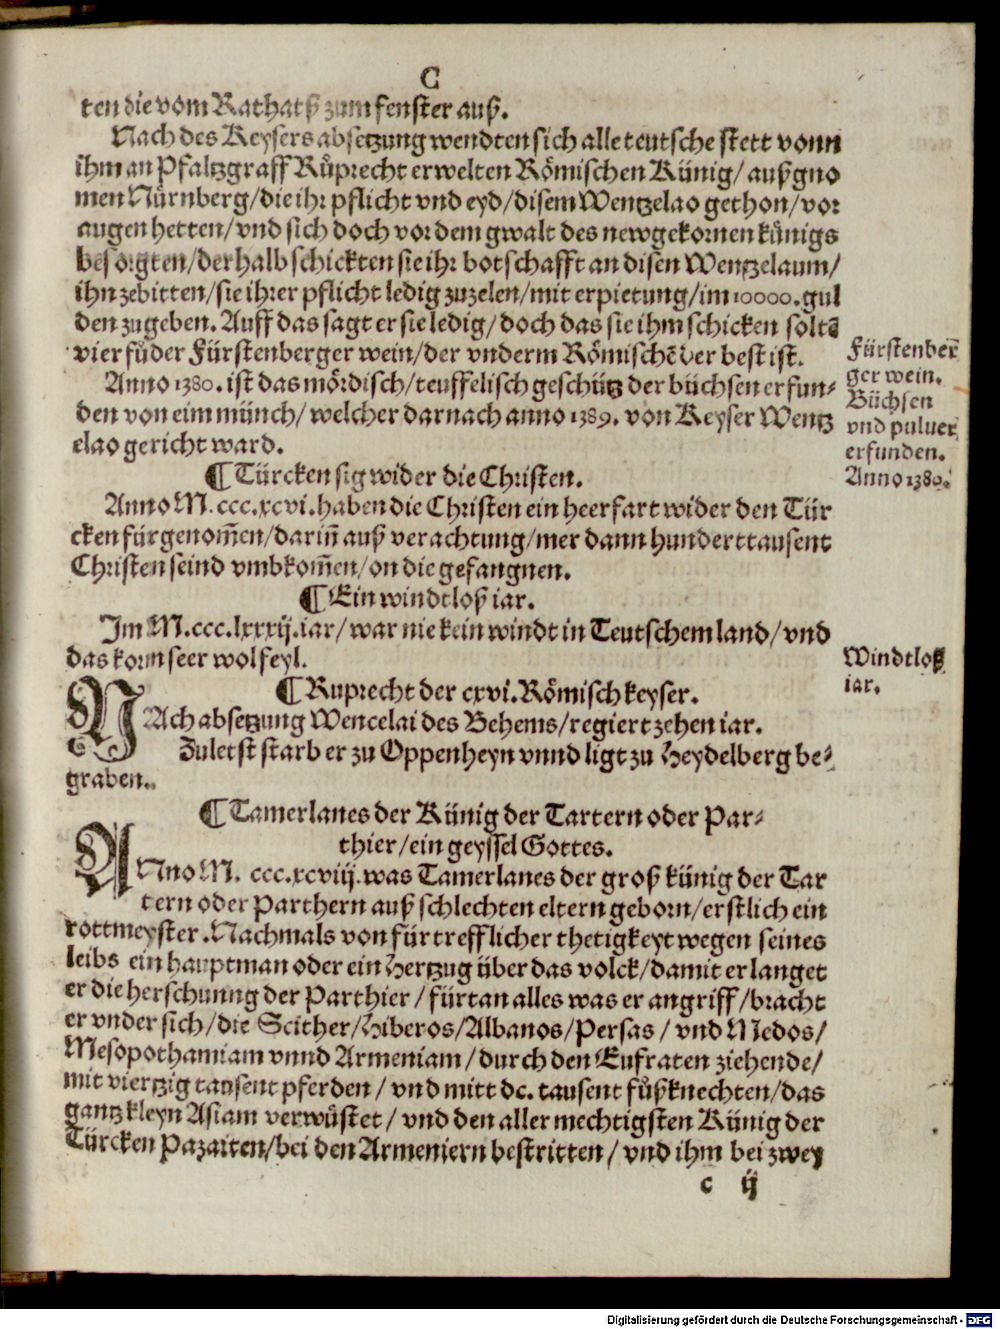 C
ten die vom Rathatß zum fenster auß.
Nach des Keysers absetzung wendten sich alle teutsche stett vonn
ihm an Pfaltzgraff Růprecht erwelten Römischen Künig/ außgno
men Nürnberg/die ihr pflicht vnd eyd/disem Wentzelao gethon/vor
augen hetten/vnd sich doch vor dem gwalt des newgekornen künigs
besorgten/derhalb schickten sie ihr botschafft an disen Wentzelaum/
ihn zebitten/sie ihrer pflicht ledig zuzelen/mit erpietung/im 10000.gul
den zugeben. Auff das sagt er sie ledig/doch das sie ihm schicken soltẽ
vier fůder Fürstenberger wein/der vnderm Römischẽ der best ist.
Fürstenber̃
ger wein.
Anno 1380. ist das mördisch/teuffelisch geschütz der büchsen erfun-
den von eim münch/ welcher darnach anno 1389. von Keyser Wentz
elao gericht ward.
Büchsen
vnd puluer
erfunden.
Anno 1380.
¶ Türcken sig wider die Christen.
Anno M.ccc.xcvi.haben die Christen ein heerfart wider den Tür
cken fürgenom̃en/darin̄ auß verachtung/mer dann hunderttausent
Christen seind vmbkom̃en/on die gefangnen.
¶ Ein windtloß iar.
Im M.ccc.lxxxij.iar/war nie kein windt in Teutschem land/vnd
das korn seer wolfeyl.
Windtloß
iar.
¶ Ruprecht der cxvi.Römisch keyser.
NAch absetzung Wencelai des Behems/regiert zehen iar.
Zuletst starb er zu Oppenheyn vnnd ligt zu Heydelberg be-
graben.
¶ Tamerlanes der Künig der Tartern oder Par-
thier/ein geyssel Gottes.
ANno M. ccc.xcviij.was Tamerlanes der groß künig der Tar
tern oder Parthern auß schlechten eltern geborn/erstlich ein
rottmeyster.Nachmals von fürtrefflicher thetigkeyt wegen seines
leibs ein hauptman oder ein Hertzug über das volck/damit er langet
er die herschunng der Parthier/fürtan alles was er angriff/bracht
er vnder sich/die Scither/Hiberos/Albanos/Persas/ vnd Medos/
Mesopothamiam vnnd Armeniam/durch den Eufraten ziehende/
mit viertzig tausent pferden/ vnd mitt dc. tausent fůßknechten/das
gantz kleyn Asiam verwüstet/ vnd den aller mechtigsten Künig der
Türcken Pazaiten/bei den Armeniern bestritten/ vnd ihm bei zwey
c ij
Digitalisierung gefördert durch die Deutsche Forschungsgemeinschaft - DFG